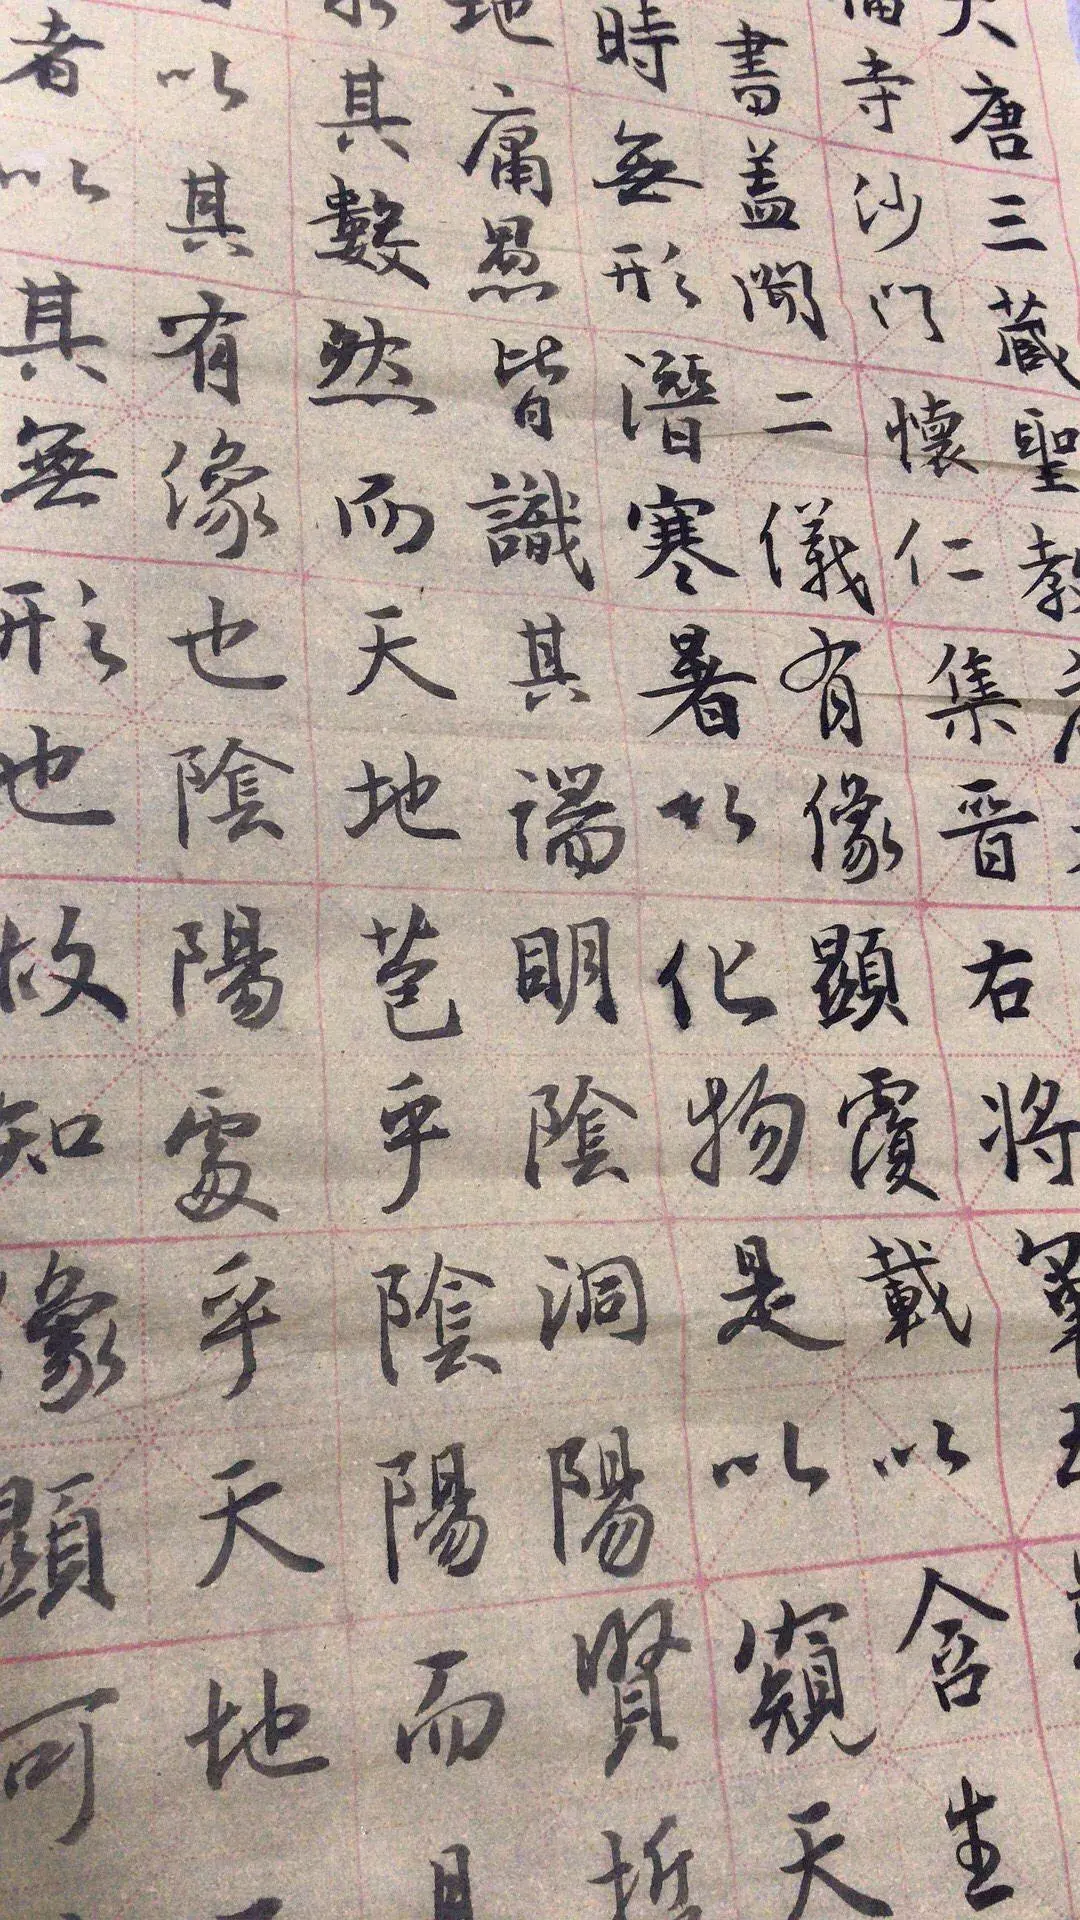 大唐三藏聖教
福寺沙門懷仁集晉右將軍
書蓋聞二儀有像顯覆載以含生
時無形潛寒暑以化物是以窺天
地庸愚皆識其端明陰洞陽賢哲
其數然而天地苞乎陰陽而
以其有像也陰陽處乎天地
者以其無形也故知像顯可